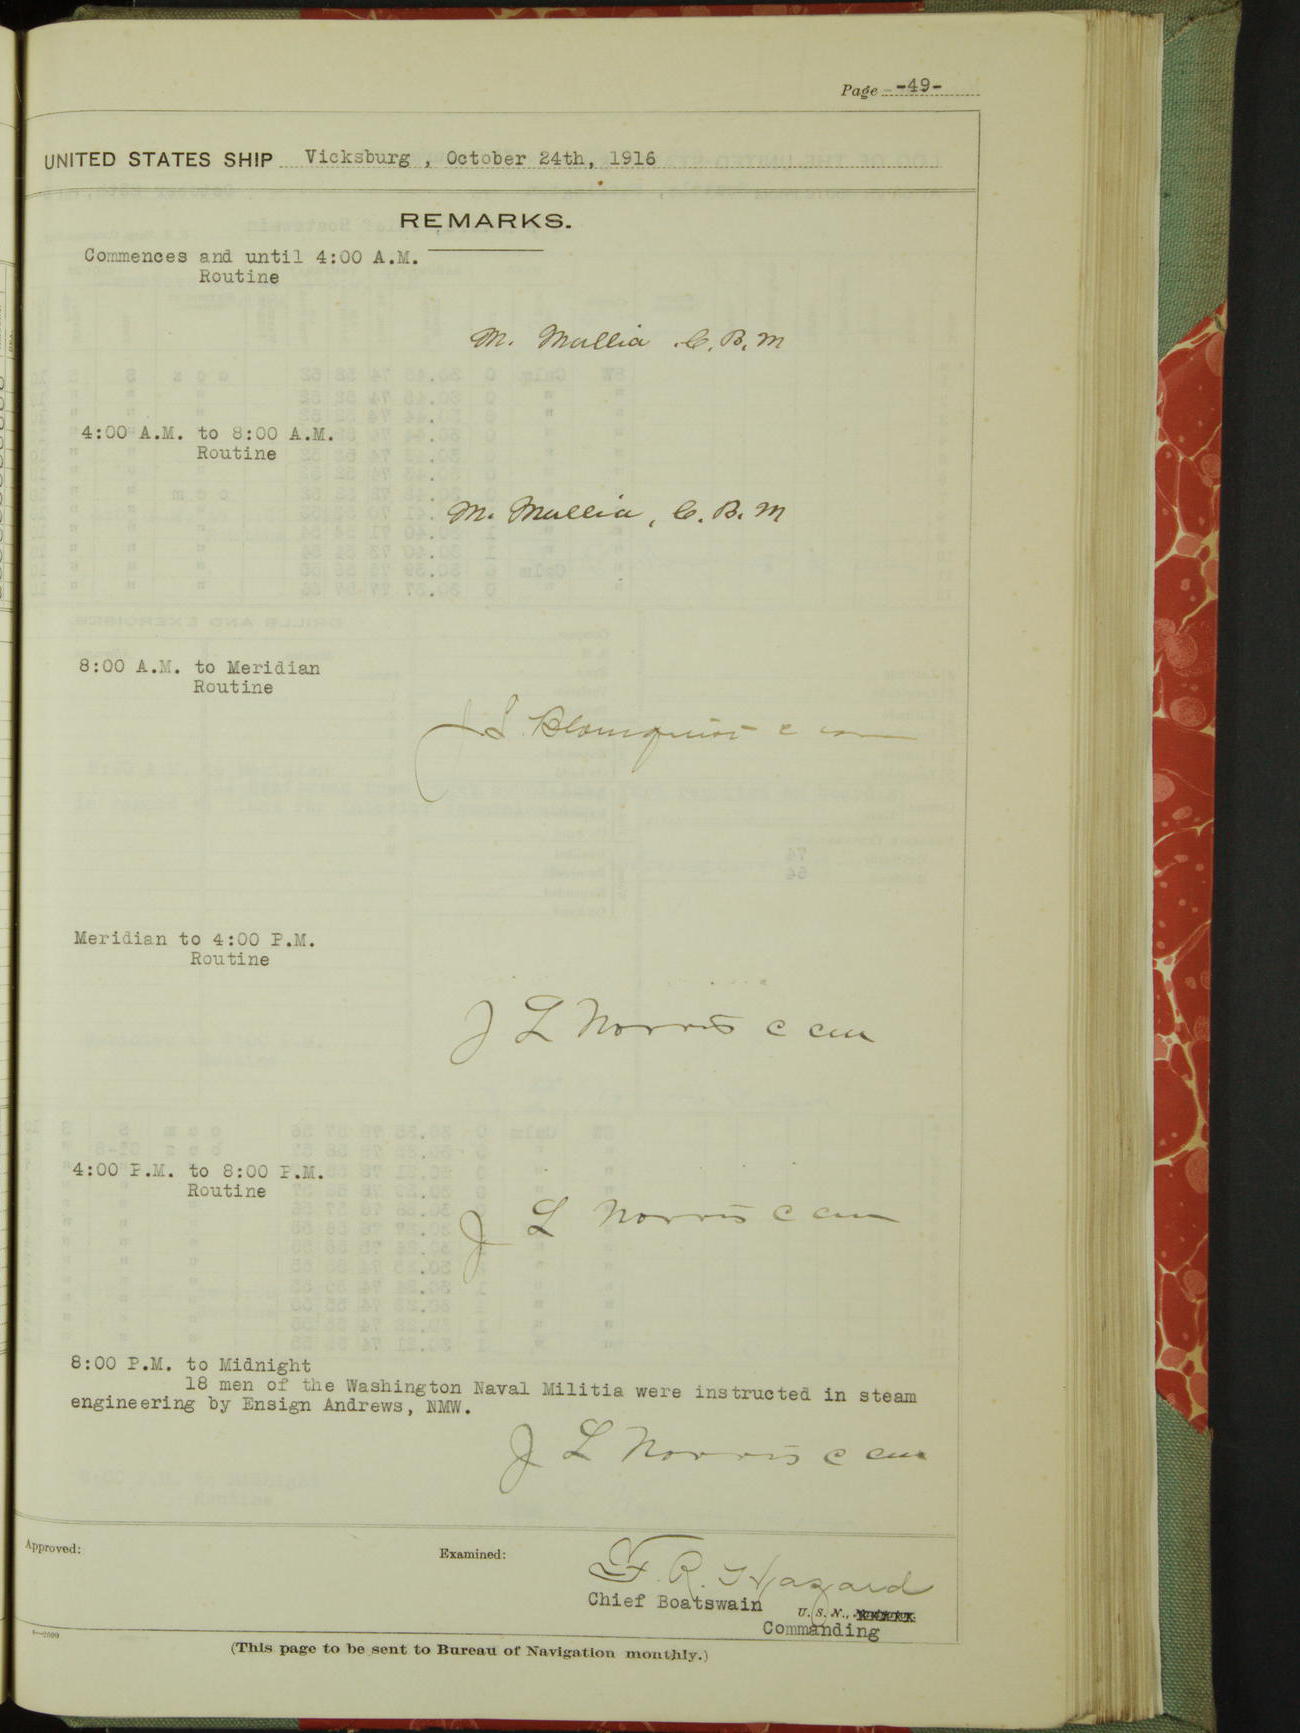 Page -49-
UNITED STATES SHIP Vicksburg , October 24th, 1916
REMARKS.
Commences and until 4:00 A.M.
Routine
M. Mullia C. B. M
4:00 A.M. to 8:00 A.M.
Routine
M. Mullia, C. B. M
8:00 A.M. to Meridian
Routine
J L Blomquist c
Meridian to 4:00 P.M.
Routine
J L Norris C CM
4:00 P.M. to 8:00 P.M.
Routine
J L Norris C CM
8:00 P.M. to Midnight
18 men of the Washington Naval Militia were instructed in steam
engineering by Ensign Andrews, NMW.
J L Norris C CM
Approved:
Examined:
F. R. Hazard
Chief Boatswain
U. S. N.,
Commanding
(This page to be sent to Bureau of Navigation monthly.)